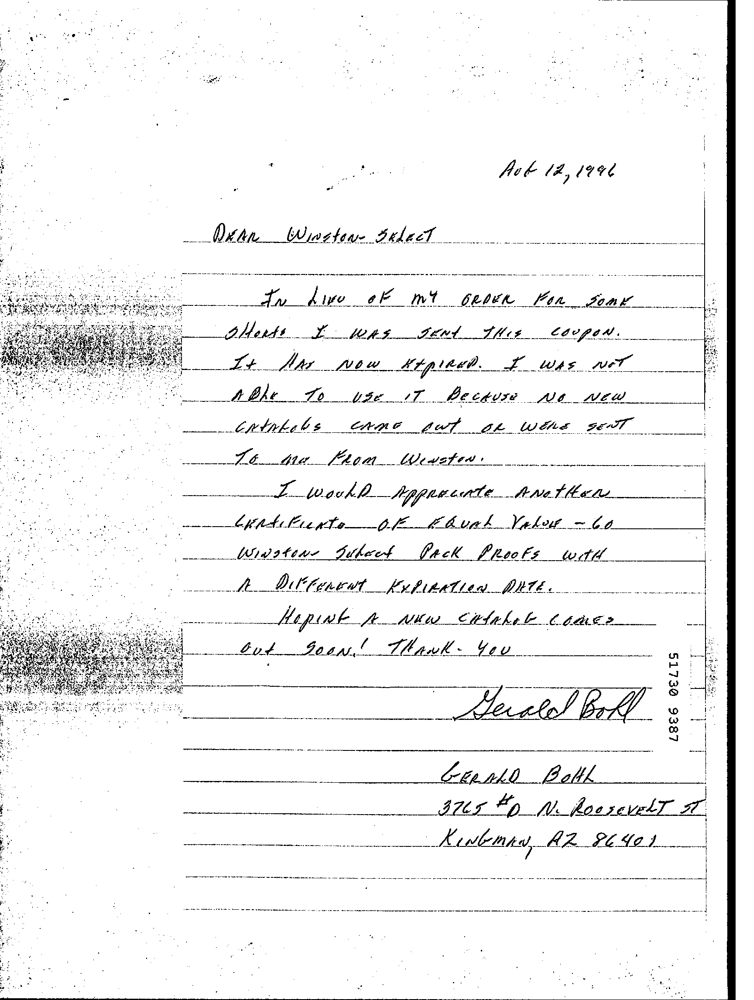 AUG 12, 1996
DEAR WINSTON SELECT
IN LIEU OF MY ORDER FOR SOME
SHORTS I WAS SENT THIS COUPON.
IT HAS NOW EXPIRED. I WAS NOT
ABLE TO USE IT BECAUSE NO NEW
CATALOGS CAME OUT OR WERE SENT
TO ME FROM WINSTON.
I WOULD APPRECIATE ANOTHER
CERTIFICATE OF EQUAL VALUE - 60
WINSTON SELECT PACK PROOFS WITH
A DIFFERENT EXPIRATION DATE.
HOPING A NEW CATALOG COMES
OUT SOON! THANK-YOU
Gerald Bohl
GERALD BOHL
3765 #D N. ROOSEVELT ST
KINGMAN, AZ 86401
51730 9387